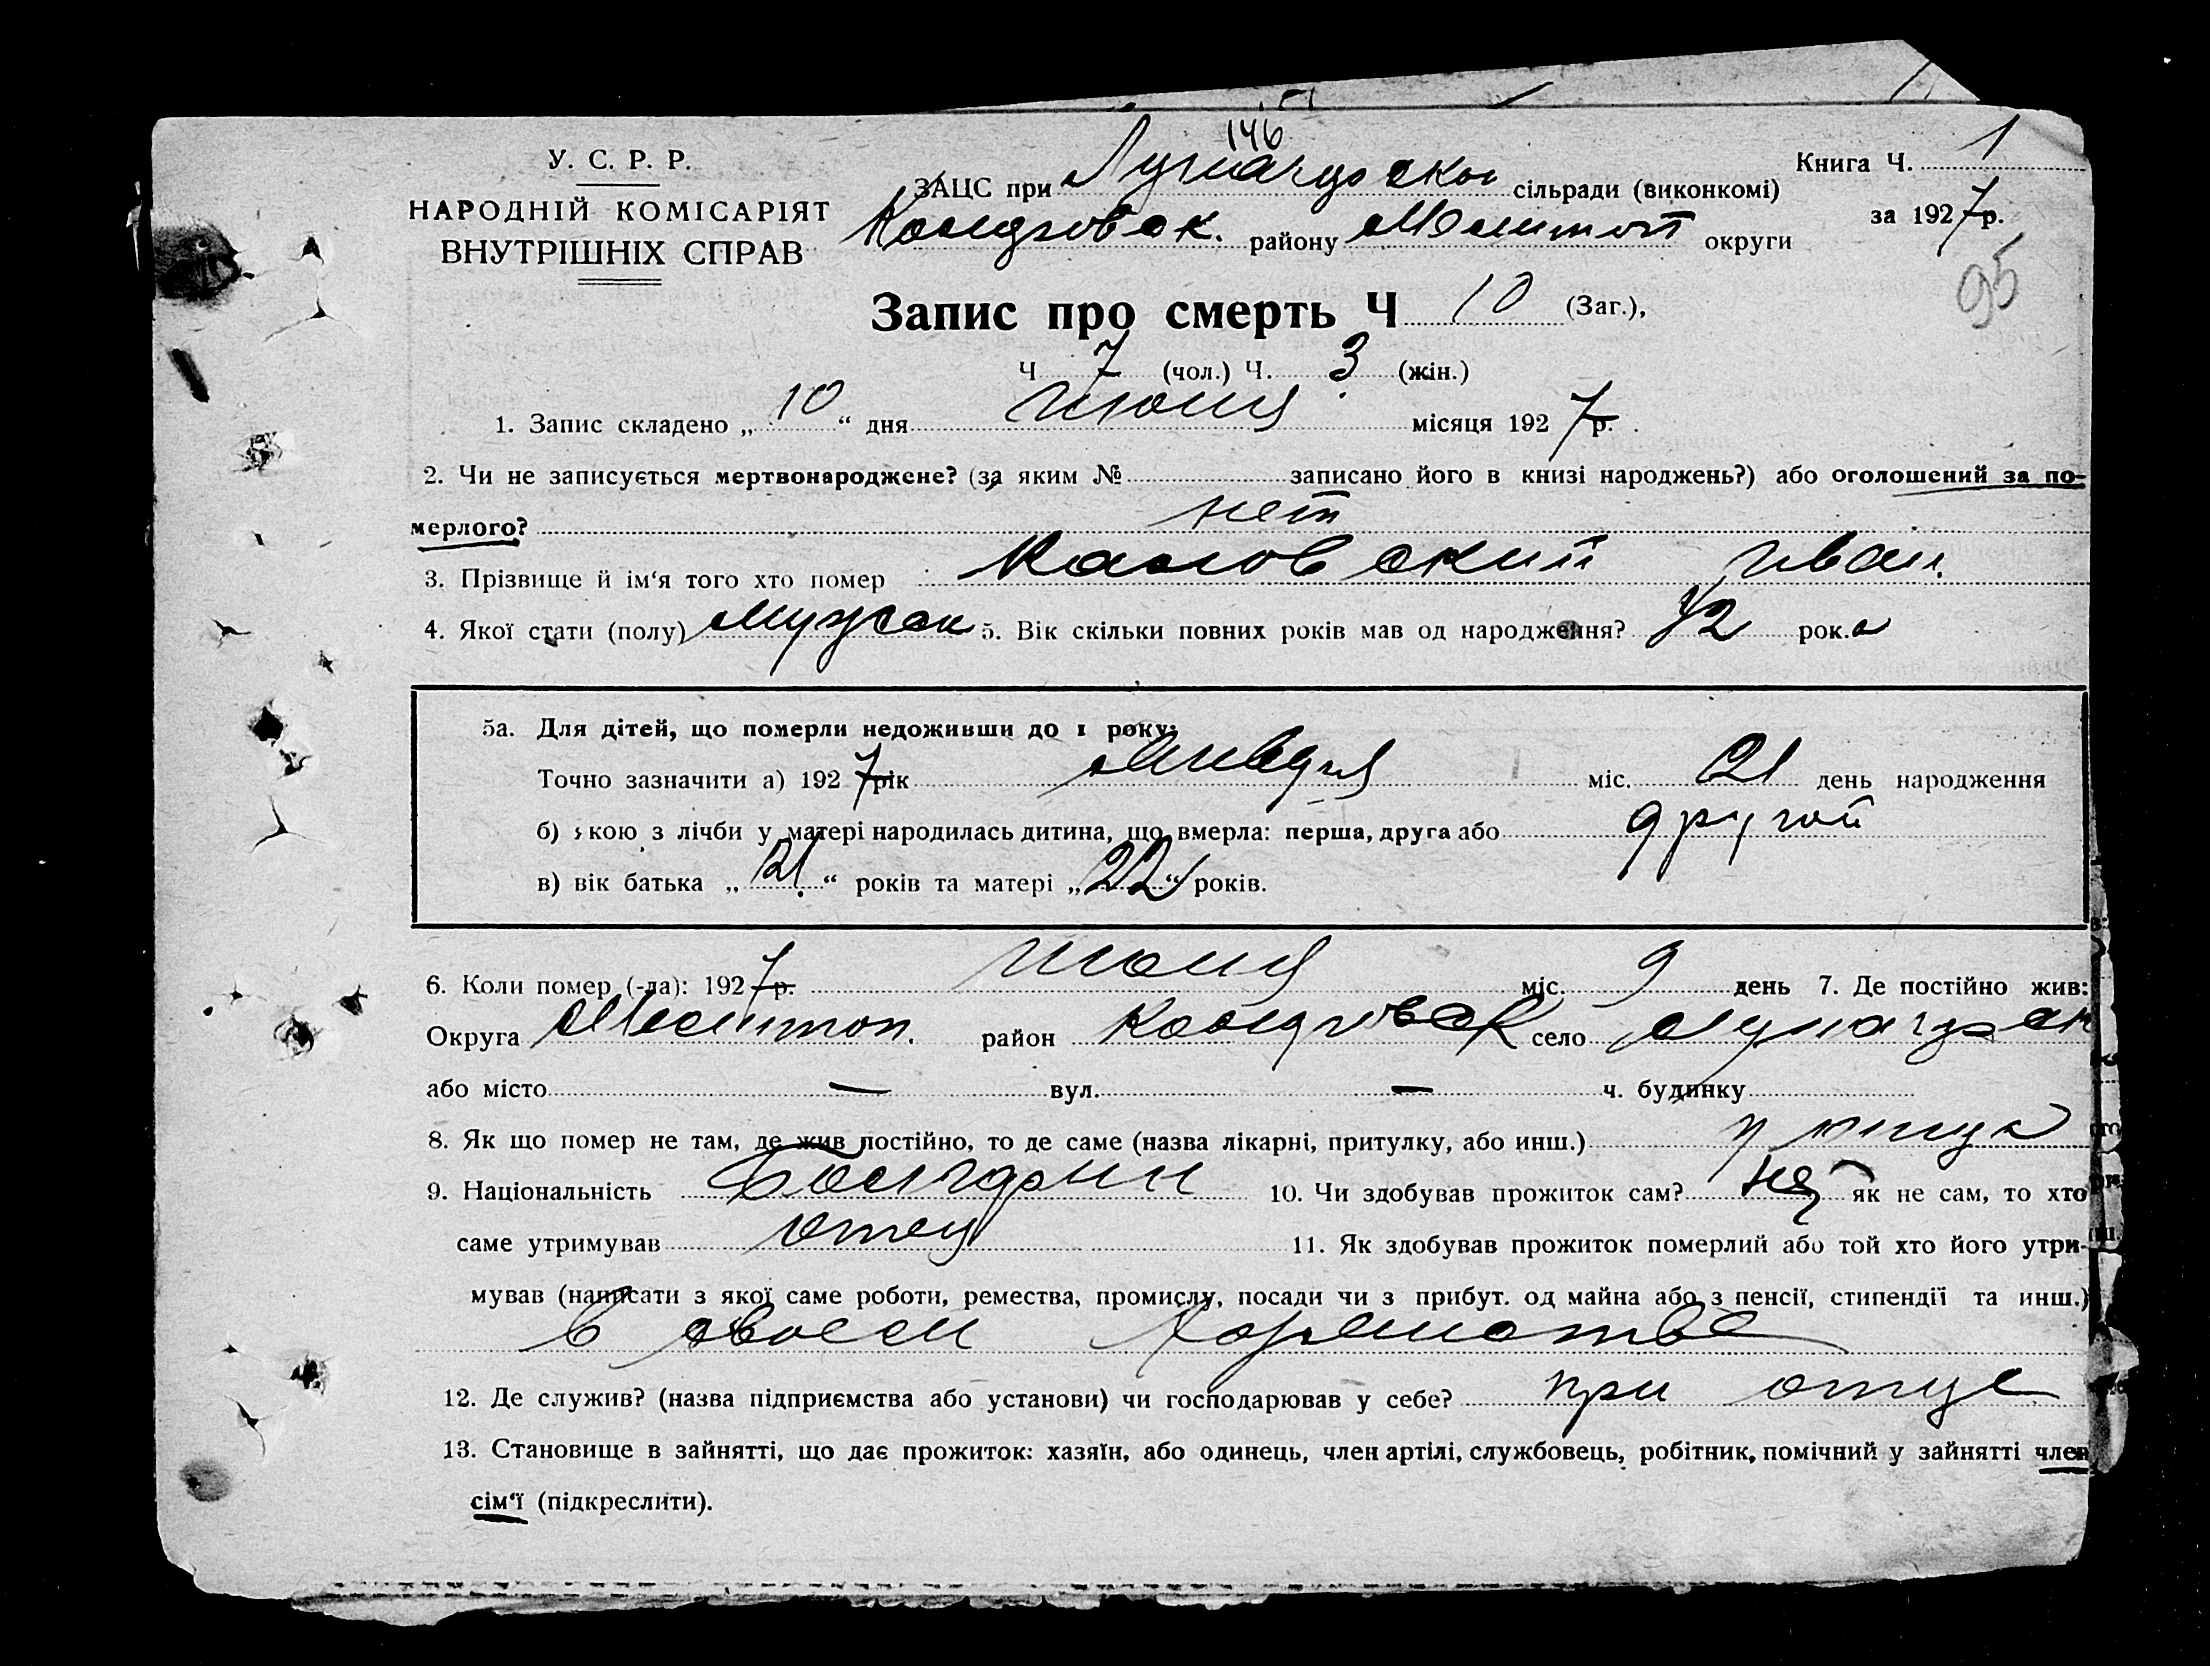 146
У. С. Р. Р. Книга Ч. 1
ЗАЦС при сільради (виконкомі)
НАРОДНІЙ КОМІСАРІЯТ за 1927р.
району Мелитоп округи
ВНУТРІШНІХ СПРАВ
95
Запис про смерть Ч 10 (Заг.),
Ч 7 (чол.) Ч. 3 (жін.)
1. Запис складено „ 10 “ дня Июня місяця 1927р.
2. Чи не записується мертвонароджене? (за яким № записано його в книзі народжень?) або оголошений за по-
мерлого? нет
3. Прізвище й ім‘я того хто помер Иван.
4. Якої стати (полу) Мужск 5. Вік скільки повних років мав од народження? 1/2 рок.а
5а. Для дітей, що померли недоживши до 1 року:
Точно зазначити а) 1927рік Января міс. 21 день народження
б) якою з лічби у матері народилась дитина, що вмерла: перша, друга або другой
в) вік батька „ 21. “ років та матері „ 22 “ років.
6. Коли помер (-ла): 1927р. Июня міс. 9 день 7. Де постійно жив:
Округа Мелитоп. район село
або місто — вул. — ч. будинку
8. Як що помер не там, де жив постійно, то де саме (назва лікарні, притулку, або инш.)
9. Національність Болгарин 10. Чи здобував прожиток сам? не як не сам, то хто
саме утримував отец 11. Як здобував прожиток померлий або той хто його утри-
мував (написати з якої саме роботи, ремества, промислу, посади чи з прибут. од майна або з пенсії, стипендії та инш.)
в своем
12. Де служив? (назва підприємства або установи) чи господарював у себе? при отце
13. Становище в зайнятті, що дає прожиток: хазяїн, або одинець, член артілі, службовець, робітник, помічний у зайнятті член
сім‘ї (підкреслити).